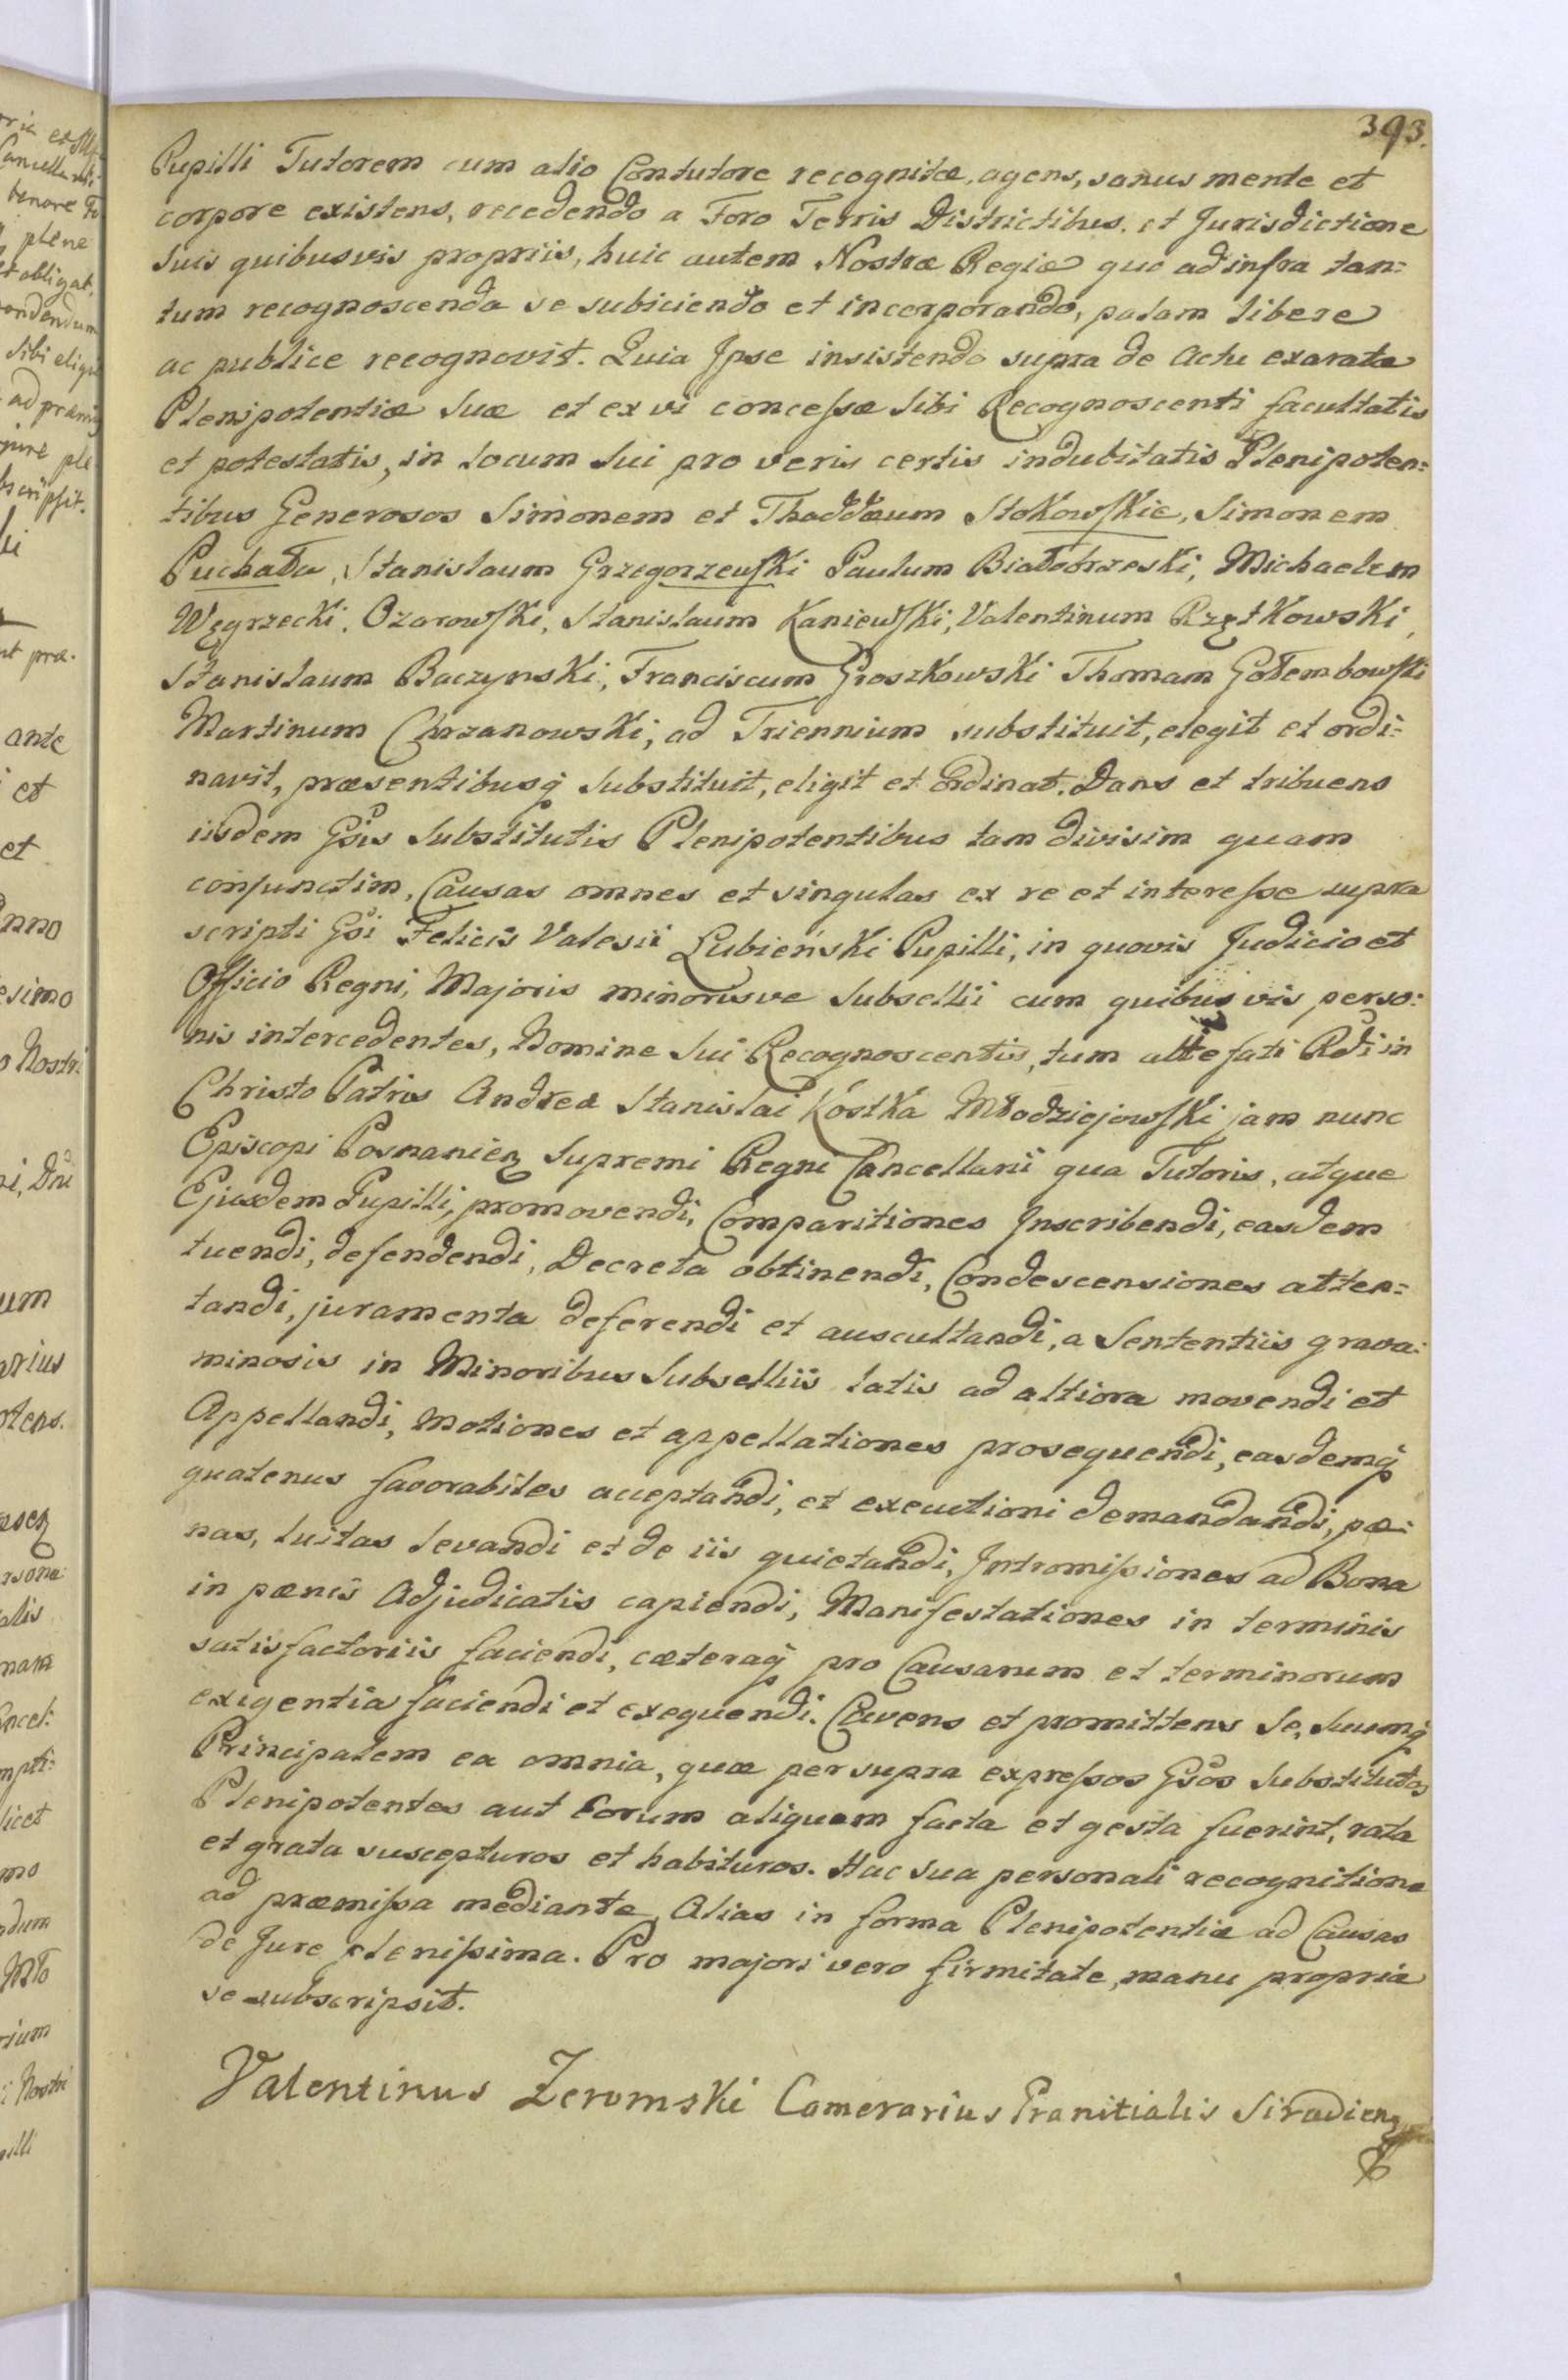 393.
Pupilli Tutorem cum alio Contutore recognitæ, agens, sanus mente et
corpore existens, recedendo a Foro Terris Districtibus, et Jurisdictione
suis quibusvis propriis, huic autem Nostræ Regiæ quo ad infra tan=
tum recognoscenda se subiciendo et incorporando, palam libere
ac publice recognovit. Quia Ipse insistendo supra de Actu exaratæ
Plenipotentiæ suæ et ex vi concessæ sibi Recognoscenti facultatis
et potestatis, in locum sui pro veris certis indubitatis Plenipoten=
tibus Generosos Simonem et Thaddæum Stokowskie, Simonem
Puchała, Stanislaum Grzegorzewski Paulum Białobrzeski, Michaelem
Węgrzecki, Ożarowski, Stanislaum Kaniewski, Valentinum Rzętkowski,
Stanislaum Baczynski, Franciscum Groszkowski Thomam Gołembowski
Martinum Chrzanowski, ad Triennium substituit, elegit et ordi=
navit, præsentibusq substituit, eligit et ordinat. Dans et tribuens
iisdem Gsis Substitutis Plenipotentibus tam divisim quam
conjunctim, Causas omnes et singulas ex re et interesse supra
scripti Gsi Felicis Valesii Łubieński Pupilli, in quovis Judicio et
Officio Regni, Majoris minorisve Subsellii cum quibus vis perso=
nis intercedentes, Nomine sui Recognoscentis, tum altefati Rdi in
Christo Patris Andreæ Stanislai Kostka Młodziejowski jam nunc
Episcopi Posnanien Supremi Regni Cancellarii qua Tutoris, atque
Ejusdem Pupilli, promovendi, Comparitiones Inscribendi, easdem
tuendi, defendendi, Decreta obtinendi, Condescensiones atten=
tandi, juramenta deferendi et auscultandi, a Sententiis grava=
minosis in Minoribus Subselliis latis ad altiora movendi et
Appellandi, Motiones et appellationes prosequendi, easdemq
quatenus favorabiles acceptandi, et executioni demandandi, pæ=
nas, luitas levandi et de iis quietandi, Intromissiones ad Bona
in pænis Adjudicatis capiendi, Manifestationes in terminis
satisfactoriis faciendi, cæteraq pro Causarum et terminorum
exigentia faciendi et exequendi. Cavens et promittens se, suumq
Principalem ea omnia, quæ per supra expressos Gsos Substitutos
Plenipotentes aut Eorum aliquem facta et gesta fuerint, rata
et grata suscepturos et habituros. Hac sua personali recognitione
ad præmissa mediante, Alias in forma Plenipotentiæ ad Causas
de Jure plenissima. Pro majori vero firmitate, manu propria
se subscripsit.
Valentinus Zeromski Camerarius Granitialis Siradien